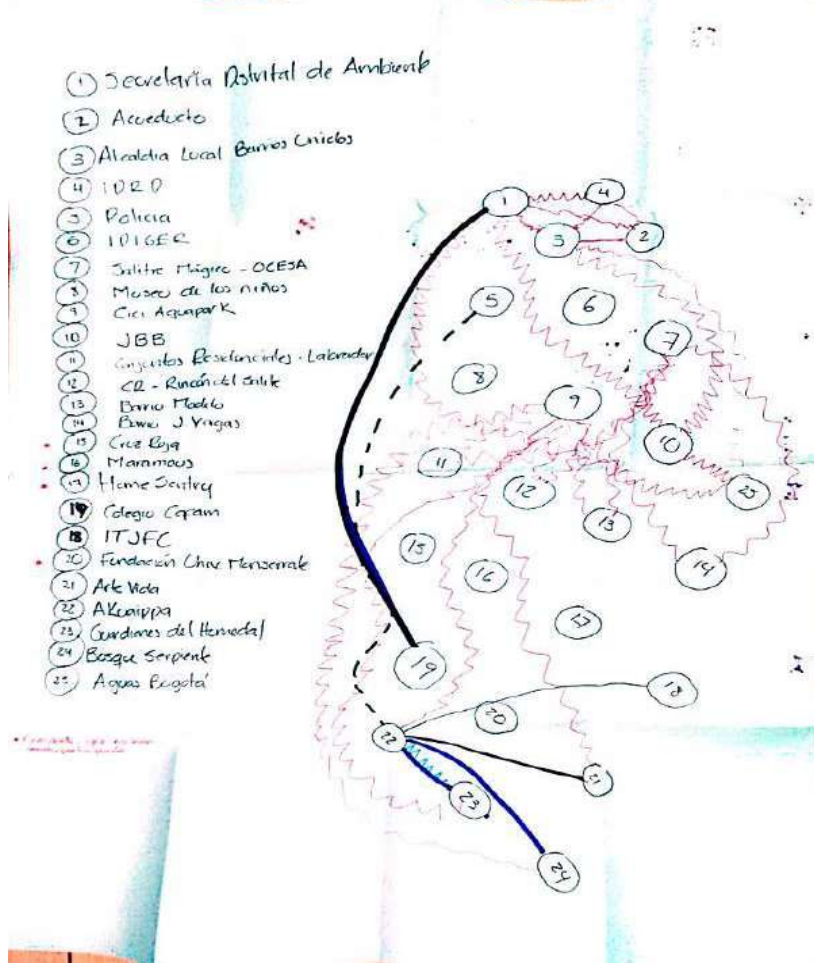 1 Secretaría Distrital de Ambiente
2 Acueducto
3 Alcaldía Local Barrios Unidos
4 IDRD
5 Policia
6 IDIGER
7 Salitre Mágico - OCESA
8 Museo de los niños
9 Cici Aquapark
10 JBB
11 Conjuntos Residenciales - Labrador
12 CR - Rincón del Salitre
13 Barrio Modelo
14 Barrio J. Vargas
15 Cruz Roja
16 
17 Home Sentry
19 Colegio Copam
18 ITJFC
20 Fundación Monserrate
21 Arte Vida
22 AKuaippa
23 Guardianes del Humedal
24 Bosque Serpiente
25 Aguas Bogotá
1
4
3
2
5
6
7
8
9
10
11
12
25
13
15
16
14
17
19
18
20
22
21
23
24